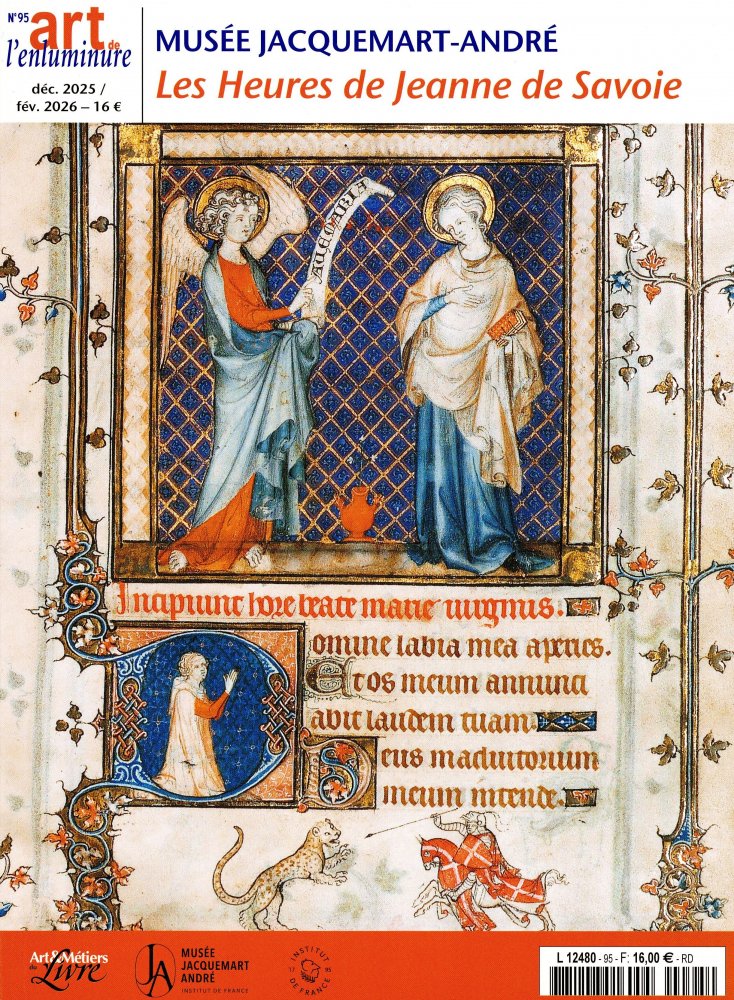 N°95
art de
l'enluminure
déc. 2025 /
fév. 2026 – 16 €
MUSÉE JACQUEMART-ANDRÉ
Les Heures de Jeanne de Savoie
AUE MARIA
Incipiunt hore beate marie uirginis.
Domine labia mea aperies.
Et os meum annunci
abit laudem tuam
Deus in adiutorium
meum intende.
Art & Métiers
du Livre
JA
MUSÉE
JACQUEMART
ANDRÉ
INSTITUT DE FRANCE
INSTITUT
17 95
DE FRANCE
L 12480 - 95 - F: 16,00 € - RD